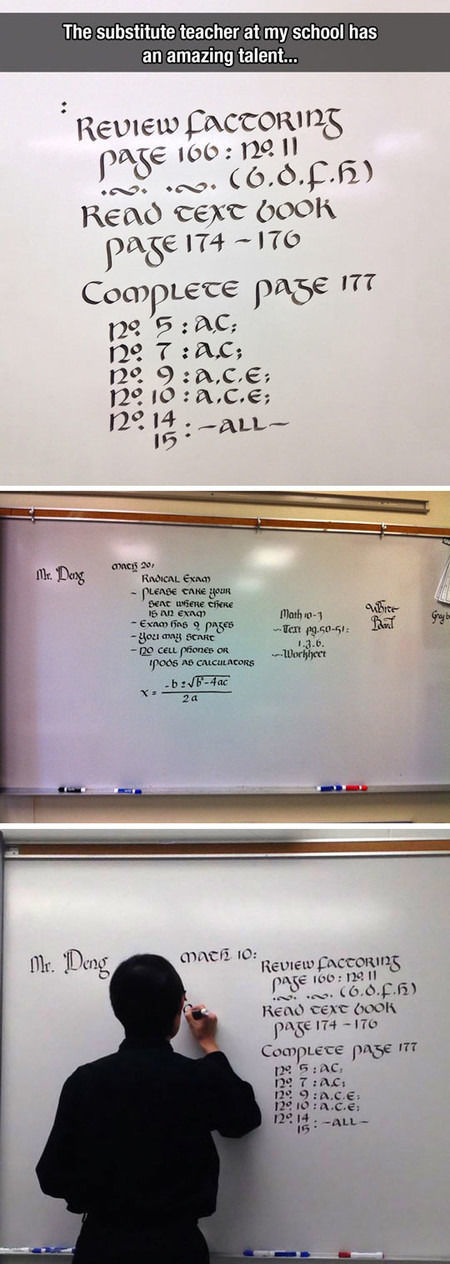 The substitute teacher at my school has
an amazing talent...
:
Review factoring
page 166 : No. 11
.~. .~. (b.d.f.h)
Read text book
page 174 – 176
Complete page 177
No. 5 : a.c;
No. 7 : a.c;
No. 9 : a.c.e;
No. 10 : a.c.e;
No. 14
15 : –all–
Mr. Deng
math 20:
Radical Exam
– Please take your
seat where there
is an exam
– Exam has 9 pages
– You may start
– No cell phones or
ipods as calculators
x = -b ± √b² - 4ac
2a
Math 10-3
~Text pg.50-51:
1.3.6.
~Worksheet
White
Board
Mr. Deng
math 10:
Review factoring
page 166 : No. 11
.~. .~. (b.d.f.h)
Read text book
page 174 – 176
Complete page 177
No. 5 : a.c;
No. 7 : a.c;
No. 9 : a.c.e;
No. 10 : a.c.e;
No. 14
15 : –all–